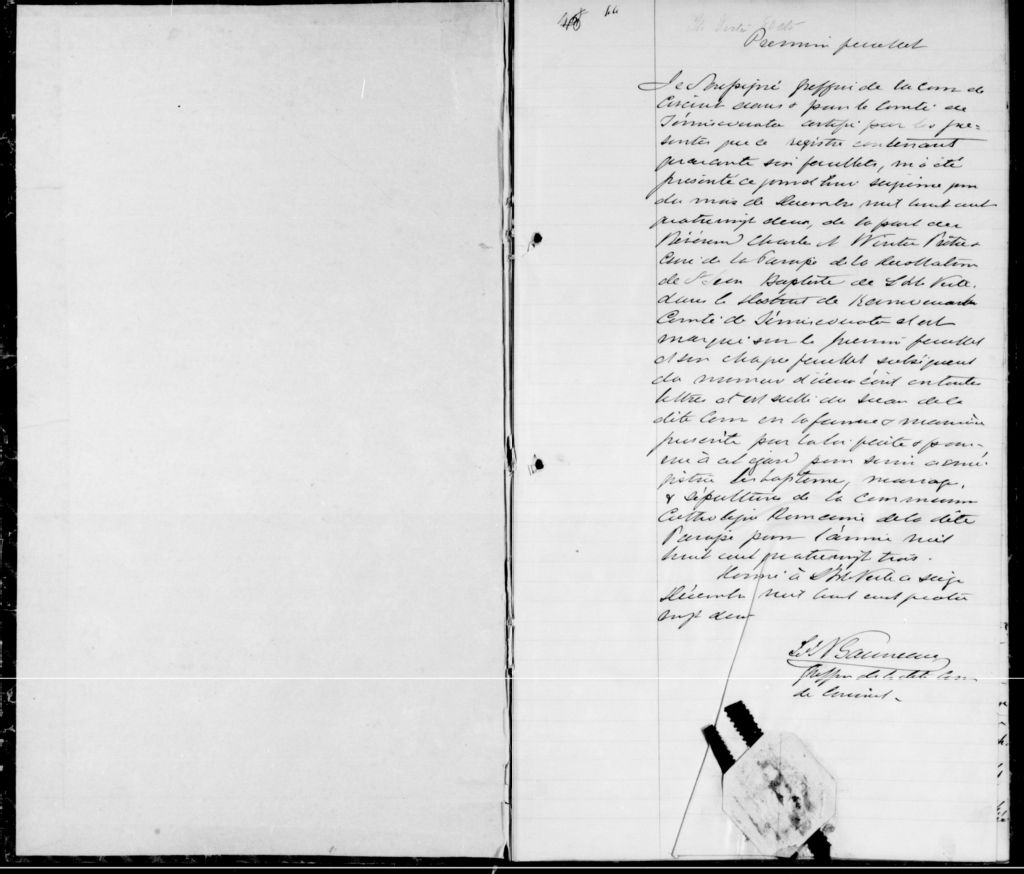 46
Premier feuillet
Je Soussigné Greffier de la Cour de
Circuit dans & pour le Comté de
Témiscouata certifie par les pré-
sentes que ce registre contenant
quarante six feuillets, m'a été
présenté ce jourd'hui seizième jour
du mois de Décembre mil huit cent
quatrevingt deux, de la part du
Révérend Charles A Winter Prêtre &
Curé de la Paroisse de la Décollation
de St Jean Baptiste de L'Isle Verte,
dans le District de Kamouraska
Comté de Témiscouata et est
marqué sur le premier feuillet
et sur chaque feuillet subséquent
du numéro d'icieux écrit en toutes
lettres et est scellé du sceau de la
dite Cour en la forme & manière
prescrite par la loi faite & pour-
vue à cet égard pour servir à enré-
gistrer les baptême, mariage,
& sépulture de la Communion
Catholique Romaine de la dite
Paroisse pour l'année mil
huit cent quatrevingt trois.
Donné à L'Isle Verte ce seize
Décembre mil huit cent quatre
vingt deux
Ls N Gauvreau
Greffier de la dite Cour
de Circuit.